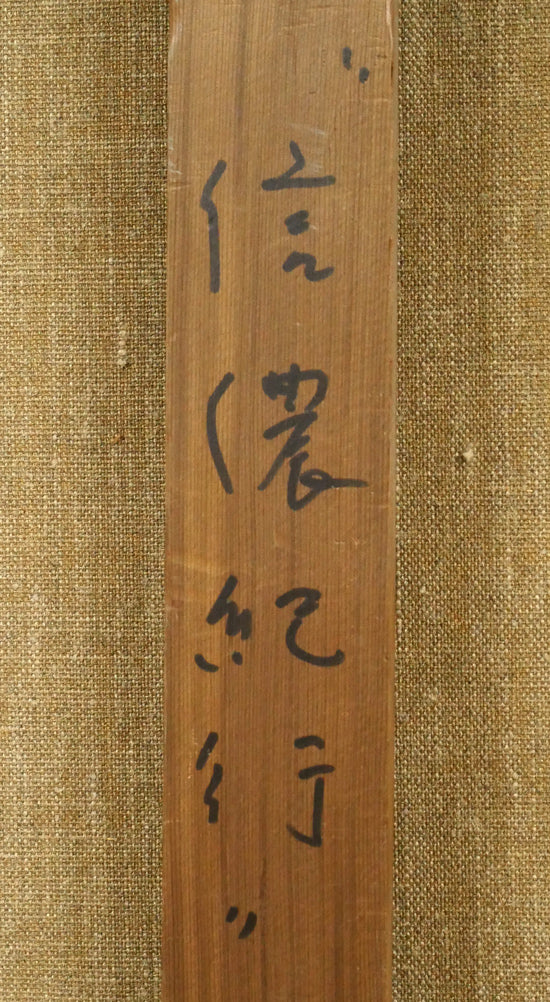 "信濃紀行"